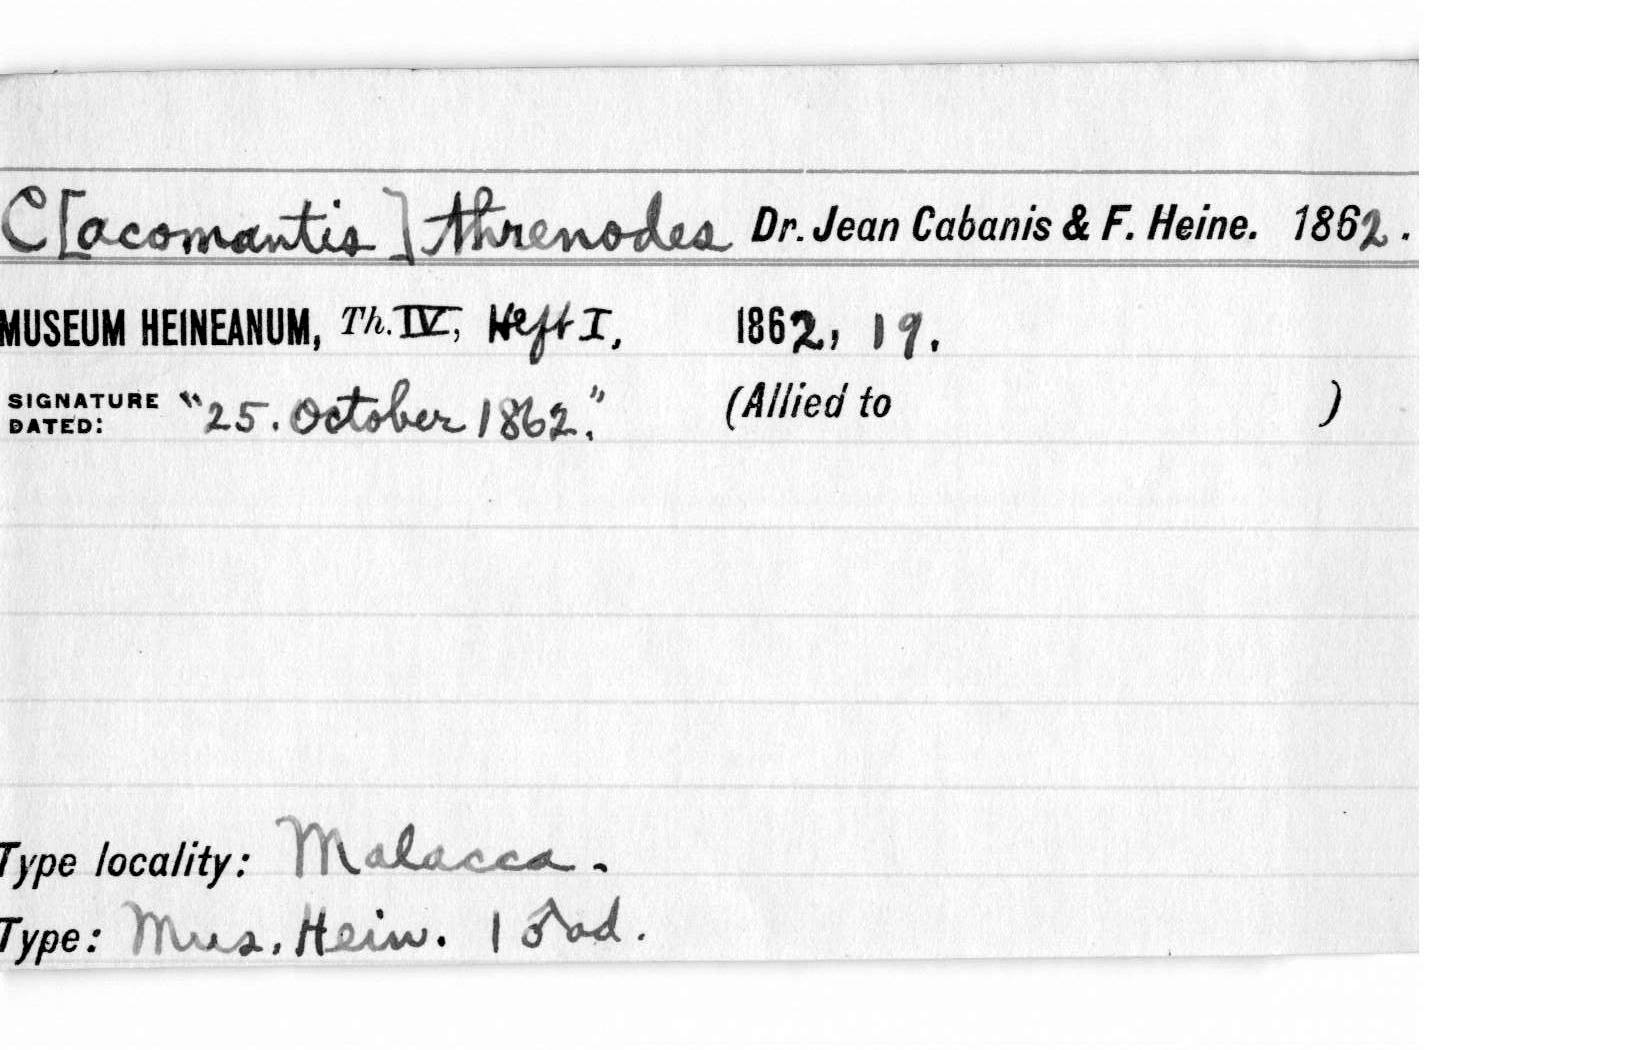 C[acomantis] threnodes Dr. Jean Cabanis & F. Heine. 1862.
MUSEUM HEINEANUM, Th. IV, Heft I, 1862, 19.
SIGNATURE DATED: "25. October 1862." (Allied to )
Type locality: Malacca.
Type: Mus. Hein. 1 ♂ ad.